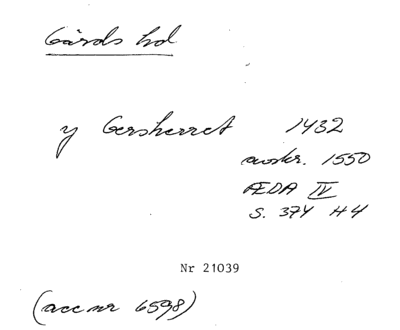 Gärds hd
y Gersherret 1432
avskr. 1550
ÆDA IV
s. 374 H4
Nr 21039
(acc nr 6598)